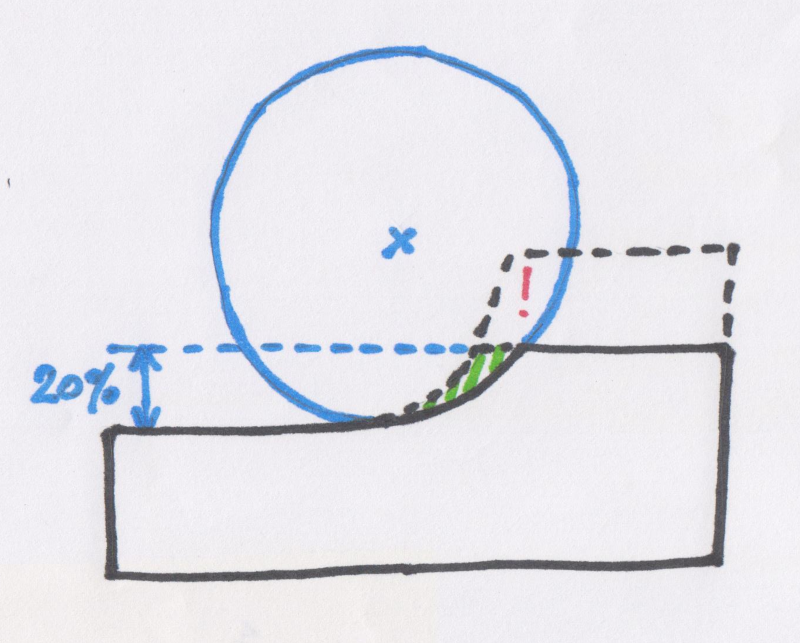 x
!
20%